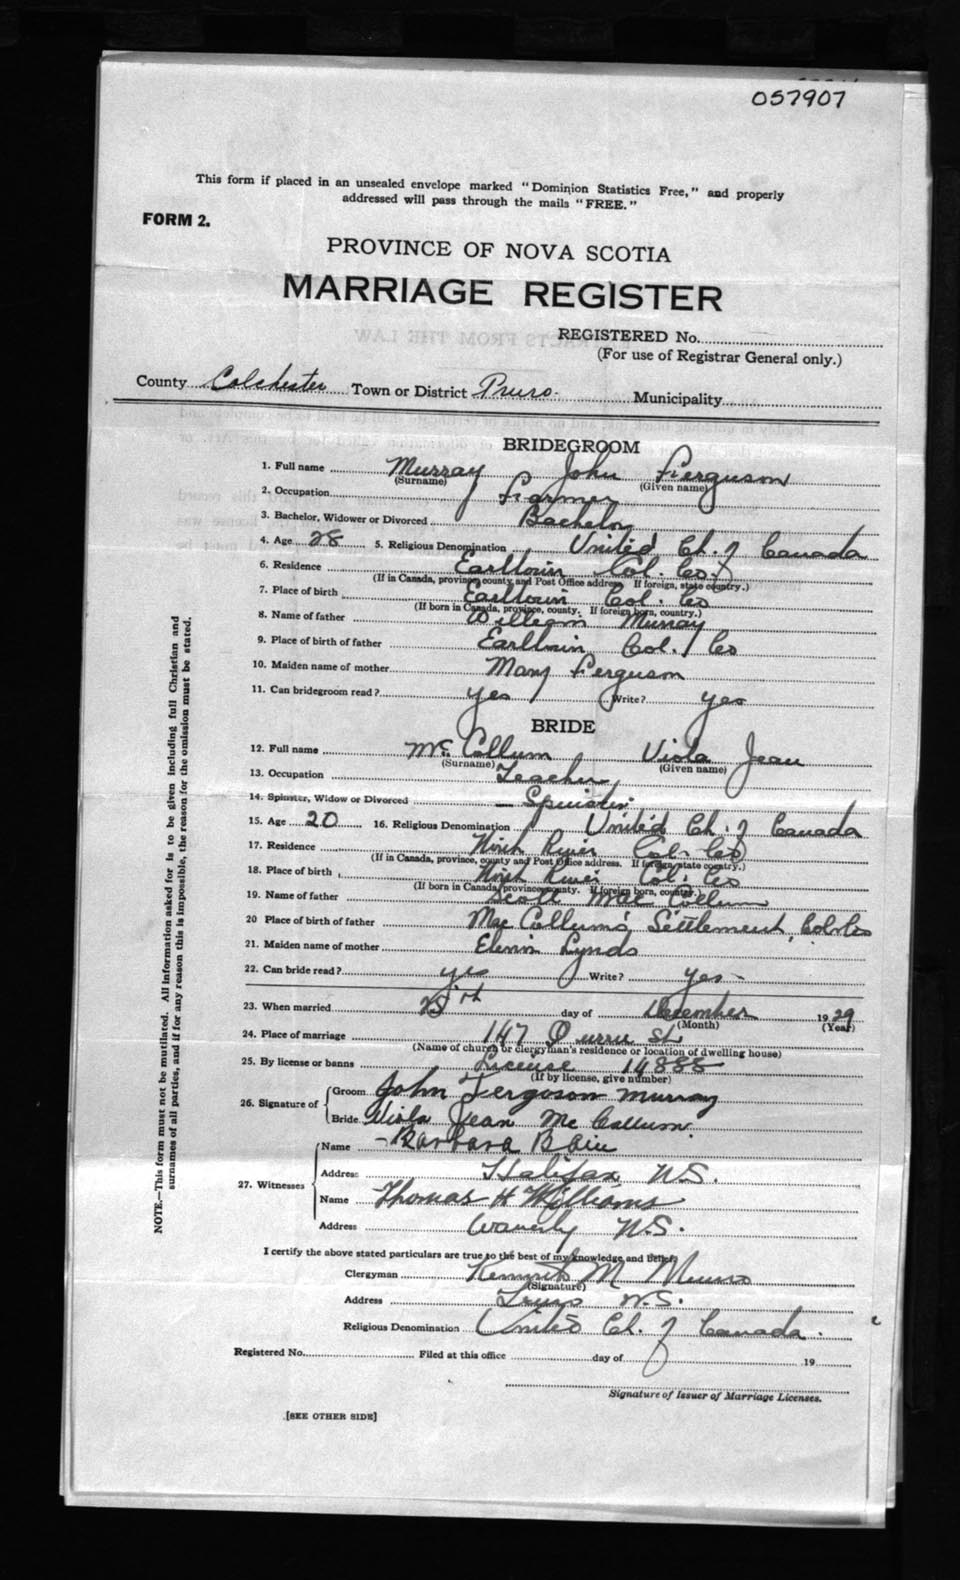 057907
This form if placed in an unsealed envelope marked "Dominion Statistics Free," and properly
addressed will pass through the mails "FREE."
FORM 2.
PROVINCE OF NOVA SCOTIA
MARRIAGE REGISTER
REGISTERED No.
(For use of Registrar General only.)
County Colchester Town or District Truro. Municipality
BRIDEGROOM
1. Full name Murray John Ferguson
(Surname) (Given name)
2. Occupation Farmer
3. Bachelor, Widower or Divorced Bachelor
4. Age 28 5. Religious Denomination United Ch. of Canada
6. Residence Earltown Col. Co.
(If in Canada, province, county and Post Office address. If foreign, state country.)
7. Place of birth Earltown Col. Co
(If born in Canada, province, county. If foreign born, country.)
8. Name of father William Murray
9. Place of birth of father Earltown Col. Co
10. Maiden name of mother Mary Ferguson
11. Can bridegroom read? yes Write? yes
BRIDE
12. Full name Mc Collum Viola Jean
(Surname) (Given name)
13. Occupation Teacher
14. Spinster, Widow or Divorced Spinster
15. Age 20 16. Religious Denomination United Ch. of Canada
17. Residence North River Col. Co
(If in Canada, province, county and Post Office address. If foreign, state country.)
18. Place of birth North River Col. Co
(If born in Canada, province, county. If foreign born, country.)
19. Name of father Scott Mac Collum
20 Place of birth of father Mac Collum's Settlement, Col. Co
21. Maiden name of mother Lynds
22. Can bride read? yes Write? yes
23. When married 25th day of December 1929
(Month) (Year)
24. Place of marriage 147 St
(Name of church or clergyman's residence or location of dwelling house)
25. By license or banns License 14888
(If by license, give number)
26. Signature of Groom John Ferguson Murray
Bride Viola Jean Mc Callum.
27. Witnesses Name Barbara Blair
Address Halifax N.S.
Name Thomas H Williams
Address Waverly N.S.
I certify the above stated particulars are true to the best of my knowledge and belief.
Clergyman Kenneth M Munro
(Signature)
Address Truro N.S.
Religious Denomination United Ch. of Canada.
Registered No. Filed at this office day of 19
Signature of Issuer of Marriage Licenses.
[SEE OTHER SIDE]
NOTE.—This form must not be mutilated. All information asked for is to be given including full Christian and
surnames of all parties, and if for any reason this is impossible, the reason for the omission must be stated.